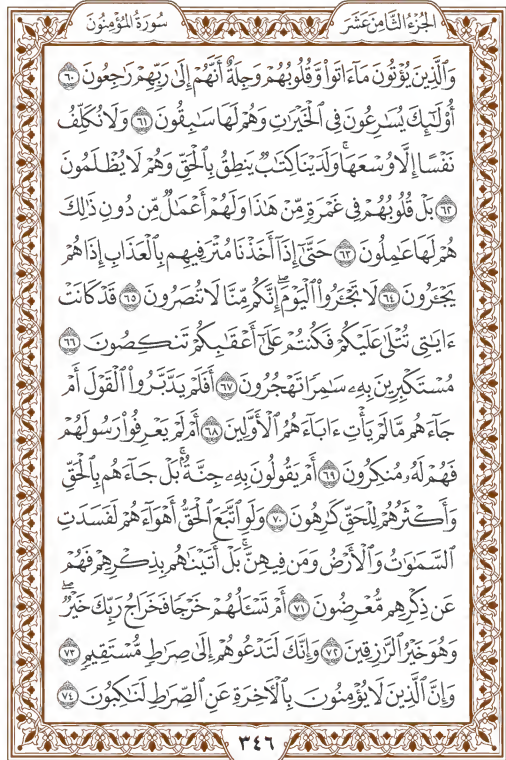 الجُزْءُ الثَّامِنَ عَشَرَ
سُورَةُ المُؤْمِنُونَ
وَالَّذِينَ يُؤْتُونَ مَا ءَاتَوا۟ وَّقُلُوبُهُمْ وَجِلَةٌ أَنَّهُمْ إِلَىٰ رَبِّهِمْ رَٰجِعُونَ ٦٠
أُو۟لَٰٓئِكَ يُسَٰرِعُونَ فِى ٱلْخَيْرَٰتِ وَهُمْ لَهَا سَٰبِقُونَ ٦١ وَلَا نُكَلِّفُ
نَفْسًا إِلَّا وُسْعَهَا ۚ وَلَدَيْنَا كِتَٰبٌ يَنطِقُ بِٱلْحَقِّ وَهُمْ لَا يُظْلَمُونَ
٦٢ بَلْ قُلُوبُهُمْ فِى غَمْرَةٍ مِّنْ هَٰذَا وَلَهُمْ أَعْمَٰلٌ مِّن دُونِ ذَٰلِكَ
هُمْ لَهَا عَٰمِلُونَ ٦٣ حَتَّىٰٓ إِذَآ أَخَذْنَا مُتْرَفِيهِم بِٱلْعَذَابِ إِذَا هُمْ
يَجْـَٔرُونَ ٦٤ لَا تَجْـَٔرُوا۟ ٱلْيَوْمَ ۖ إِنَّكُم مِّنَّا لَا تُنصَرُونَ ٦٥ قَدْ كَانَتْ
ءَايَٰتِى تُتْلَىٰ عَلَيْكُمْ فَكُنتُمْ عَلَىٰٓ أَعْقَٰبِكُمْ تَنكِصُونَ ٦٦
مُسْتَكْبِرِينَ بِهِۦ سَٰمِرًا تَهْجُرُونَ ٦٧ أَفَلَمْ يَدَّبَّرُوا۟ ٱلْقَوْلَ أَمْ
جَآءَهُم مَّا لَمْ يَأْتِ ءَابَآءَهُمُ ٱلْأَوَّلِينَ ٦٨ أَمْ لَمْ يَعْرِفُوا۟ رَسُولَهُمْ
فَهُمْ لَهُۥ مُنكِرُونَ ٦٩ أَمْ يَقُولُونَ بِهِۦ جِنَّةٌۢ ۚ بَلْ جَآءَهُم بِٱلْحَقِّ
وَأَكْثَرُهُمْ لِلْحَقِّ كَٰرِهُونَ ٧٠ وَلَوِ ٱتَّبَعَ ٱلْحَقُّ أَهْوَآءَهُمْ لَفَسَدَتِ
ٱلسَّمَٰوَٰتُ وَٱلْأَرْضُ وَمَن فِيهِنَّ ۚ بَلْ أَتَيْنَٰهُم بِذِكْرِهِمْ فَهُمْ
عَن ذِكْرِهِم مُّعْرِضُونَ ٧١ أَمْ تَسْـَٔلُهُمْ خَرْجًا فَخَرَاجُ رَبِّكَ خَيْرٌ ۖ
وَهُوَ خَيْرُ ٱلرَّٰزِقِينَ ٧٢ وَإِنَّكَ لَتَدْعُوهُمْ إِلَىٰ صِرَٰطٍ مُّسْتَقِيمٍ ٧٣
وَإِنَّ ٱلَّذِينَ لَا يُؤْمِنُونَ بِٱلْـَٔاخِرَةِ عَنِ ٱلصِّرَٰطِ لَنَٰكِبُونَ ٧٤
٣٤٦